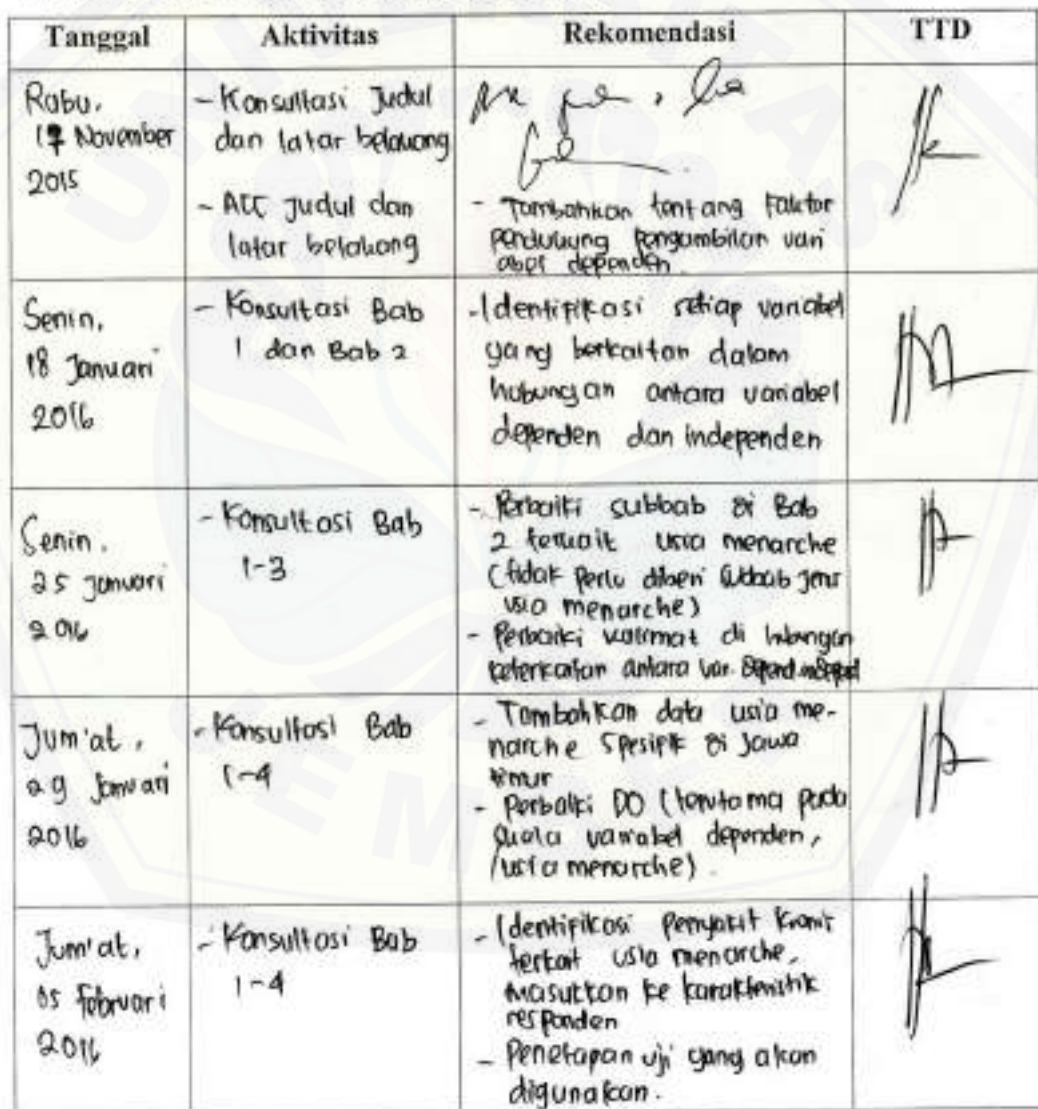 Tanggal Aktivitas Rekomendasi TTD
Rabu,
November
2015
- Konsultasi Judul
dan latar belakang
- ACC Judul dan
latar belakang
- Tambahkan tentang Faktor
pendukung pengambilan vari
abel dependen.
Senin,
18 Januari
2016
- Konsultasi Bab
1 dan Bab 2
- Identifikasi setiap variabel
yang berkaitan dalam
hubungan antara variabel
dependen dan independen
Senin,
25 Januari
2016
- Konsultasi Bab
1-3
- Perbaiki subbab di Bab
2 terkait usia menarche
(tidak perlu diberi subbab jenis
usia menarche)
- Perbaiki kalimat di hubungan
keterkaitan antara var.
Jum'at,
29 Januari
2016
- Konsultasi Bab
1-4
- Tambahkan data usia me-
narche spesifik di Jawa
timur
- Perbaiki DO (terutama pada
skala variabel dependen,
(usia menarche).
Jum'at,
05 Februari
2016
- Konsultasi Bab
1-4
- Identifikasi penyakit kronis
terkait usia menarche,
masukkan ke karakteristik
responden
- Penetapan uji yang akan
digunakan.